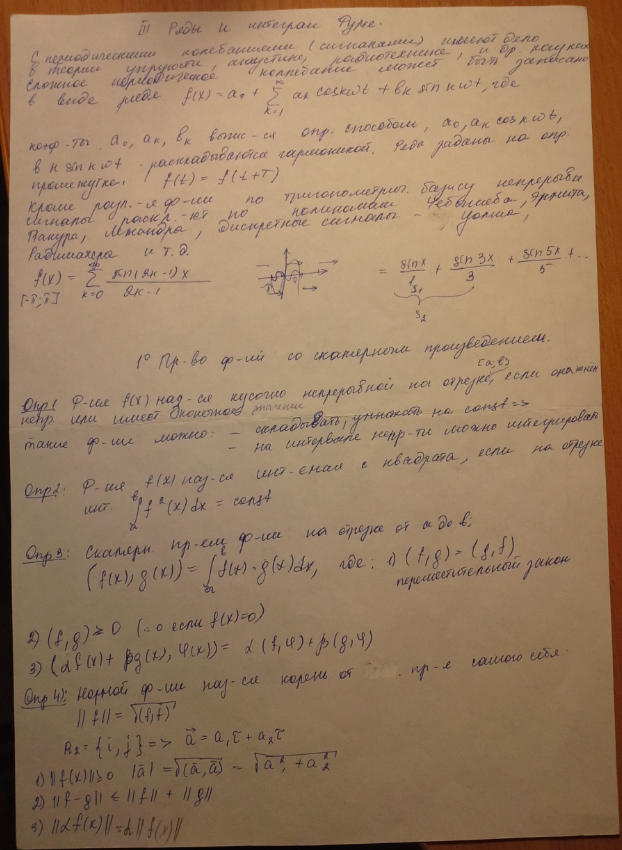 III Ряды и интеграл Фурье.
С периодическими колебаниями (сигналами) имеют дело
в теории упругости, акустике, радиотехнике, и др.
Сложное периодическое колебание может быть записано
в виде ряда f(x) = a₀ + ∑ₖ₌₁^∞ aₖ cos kωt + bₖ sin kωt, где
коэф-ты a₀, aₖ, bₖ выпис-ся опр. способом, a₀, aₖ cos kωt,
в к sin kωt - раскладываются гармоникой. Ряды заданы на опр.
промежутке. f(t) = f(t+T)
Кроме разл-я ф-ии по тригонометрич. базису непрерывн
сигналы раскл.-ют по полиномам Чебышева, Эрмита,
Лежандра, дискретные сигналы - Уолша,
Радимахера и т.д.
f(x) = ∑ₖ₌₀^∞ sin(2k-1)x / 2k-1 = sin x / 1 + sin 3x / 3 + sin 5x / 5 + ...
[-π; π] S₁
S₂
1° Пр-во ф-ий со скалярным произведением.
[a, b]
Опр1 Ф-ия f(x) наз-ся кусочно непрерывной на отрезке, если она
непр. или имеет значение
такие ф-ии можно: - складывать, умножать на const =>
- на интервале непр-ти можно интегрировать
Опр2: Ф-ия f(x) наз-ся инт-емая с квадрата, если на отрезке
инт. ∫ₐᵇ f²(x) dx = const
Опр3: Скалярн. пр-ем ф-ии на отрезке от a до b,
(f(x), g(x)) = ∫ₐᵇ f(x)·g(x)dx, где: 1) (f,g) = (g,f)
переместительный закон
2) (f,g) ≥ 0 (=0 если f(x)=0)
3) (αf(x) + βg(x), φ(x)) = α(f,φ) + β(g,φ)
Опр4): Нормой ф-ии наз-ся корень от пр-я самого себя.
||f|| = √(f,f)
A₂ = {i, j} => a⃗ = a₁τ + a₂τ
1) ||f(x)|| ≥ 0 |ā| = √(ā,ā) = √a₁² + a₂²
2) ||f-g|| ≤ ||f|| + ||g||
3) ||αf(x)|| = α||f(x)||